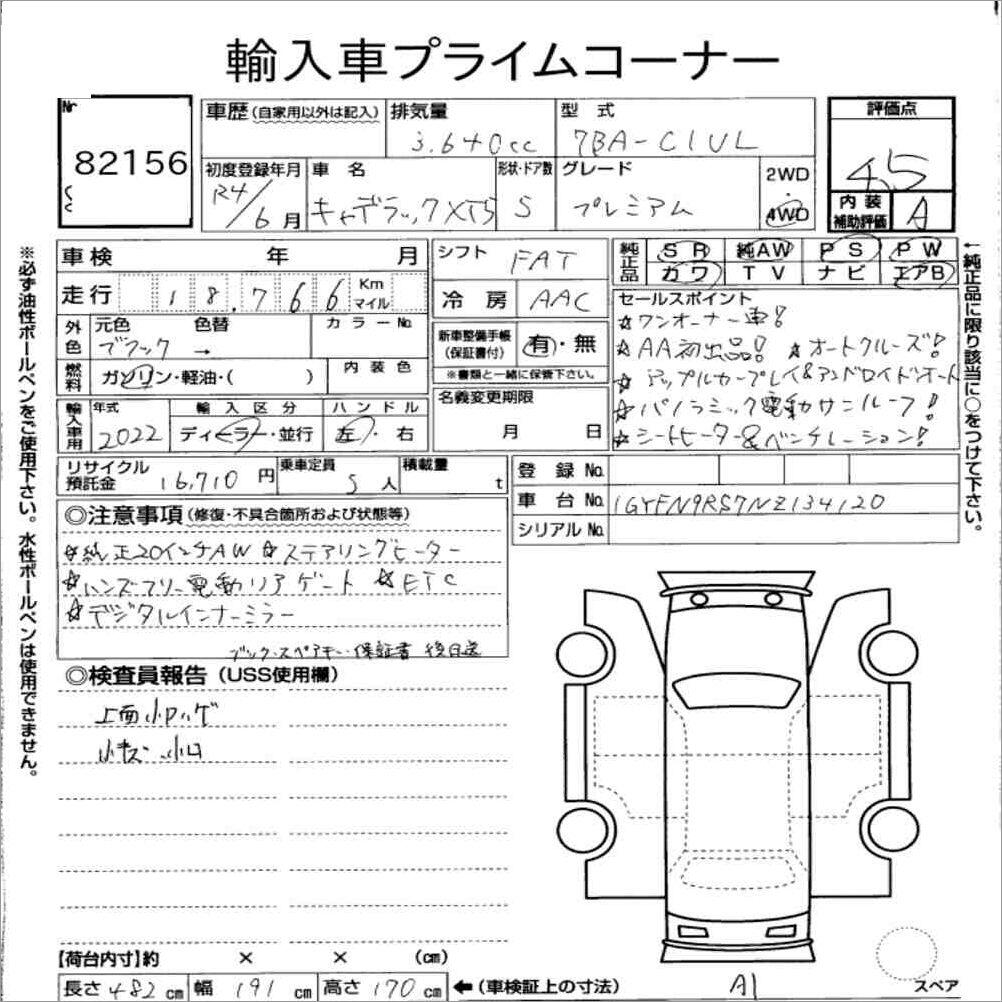 輸入車プライムコーナー
Nr
82156
車歴(自家用以外は記入)
排気量
3.640cc
型 式
7BA-C1UL
評価点
4.5
内装補助評価 A
初度登録年月
R4/6月
車 名
キャデラックXT5
形状・ドア数
5
グレード
プレミアム
2WD
・
4WD
車検 年 月
走行 18.766 Km マイル
シフト FAT
冷房 AAC
純正品 SR 純AW PS PW
カワ TV ナビ エアB
外色 元色 色替 カラーNo.
ブラック →
燃料 ガソリン・軽油・( )
内装色
新車整備手帳(保証書付) 有・無
※書類と一緒に保管下さい。
セールスポイント
☆ワンオーナー車!
☆AA初出品! ☆オートクルーズ!
☆アップルカープレイ&アンドロイドオート
☆パノラミック電動サンルーフ!
☆シートヒーター&ベンチレーション!
輸入車用 年式 輸入区分 ハンドル
2022 ディーラー・並行 左・右
名義変更期限
月 日
リサイクル預託金 16,710円
乗車定員 5人
積載量 t
登録No.
車台No. 1GYFN9RS7NZ134120
シリアルNo.
◎注意事項(修復・不具合箇所および状態等)
☆純正20インチAW ☆ステアリングヒーター
☆ハンズフリー電動リアゲート ☆ETC
☆デジタルインナーミラー
ブック・スペアキー・保証書 後日送
◎検査員報告(USS使用欄)
上面小ハゲ
小キズ 小凹
【荷台内寸】約 × × (cm)
長さ482cm 幅191cm 高さ170cm
←(車検証上の寸法)
A1
スペア
※必ず油性ボールペンをご使用下さい。水性ボールペンは使用できません。
←純正品に限り該当に○をつけて下さい。